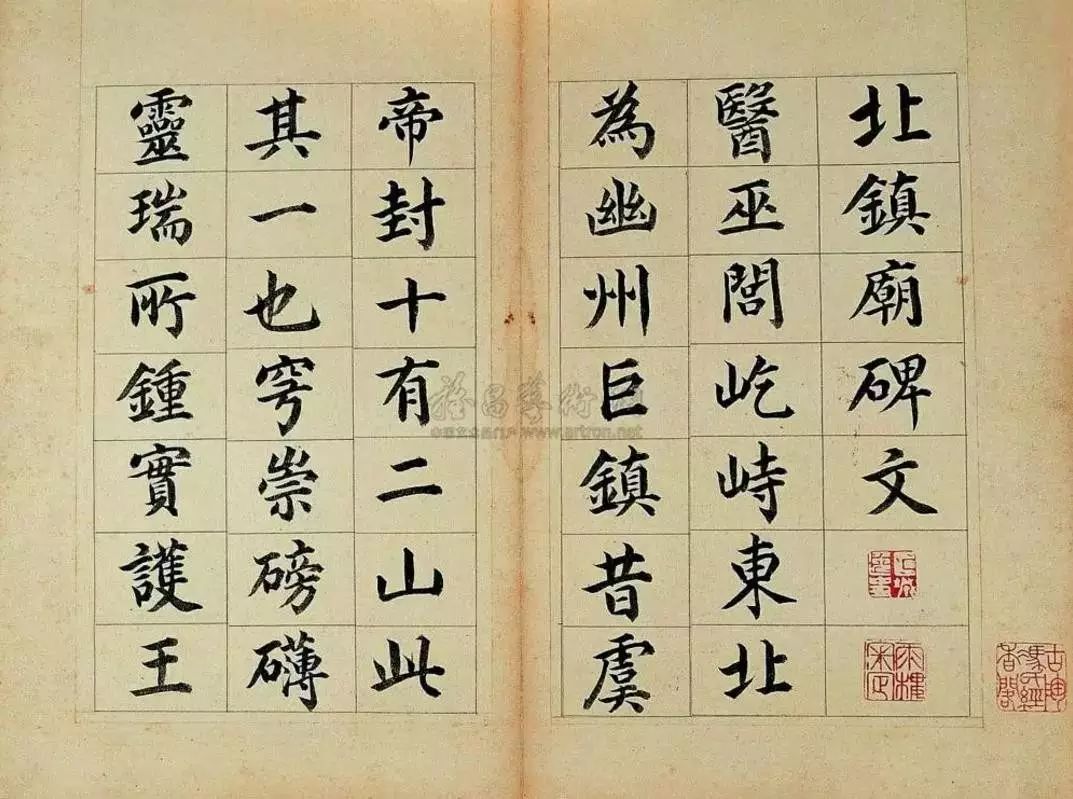 北鎮廟碑文
醫巫閭屹峙東北
為幽州巨鎮昔虞
帝封十有二山此
其一也穹崇磅礴
靈瑞所鍾實護王
www.artron.net